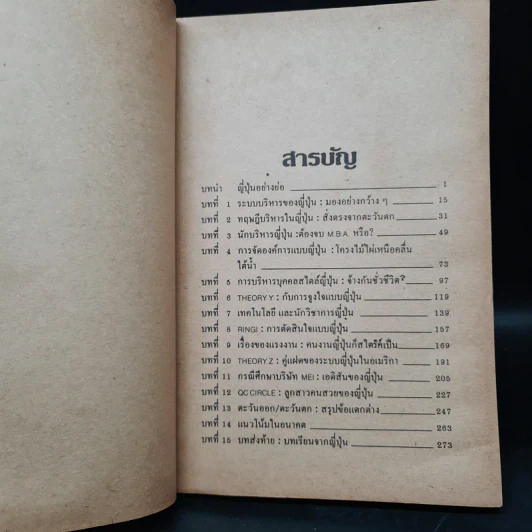 สารบัญ
บทนำ ญี่ปุ่นอย่างย่อ 1
บทที่ 1 ระบบบริหารของญี่ปุ่น : มองอย่างกว้าง ๆ 15
บทที่ 2 ทฤษฎีบริหารในญี่ปุ่น : สั่งตรงจากตะวันตก 31
บทที่ 3 นักบริหารญี่ปุ่น :ต้องจบ M.B.A. หรือ? 49
บทที่ 4 การจัดองค์การแบบญี่ปุ่น : โครงไม้ไผ่เหนือคลื่น
ใต้น้ำ 73
บทที่ 5 การบริหารบุคคลสไตล์ญี่ปุ่น : จ้างกันชั่วชีวิต? 97
บทที่ 6 THEORY Y : กับการจูงใจแบบญี่ปุ่น 119
บทที่ 7 เทคโนโลยี และนักวิชาการญี่ปุ่น 139
บทที่ 8 RINGI : การตัดสินใจแบบญี่ปุ่น 157
บทที่ 9 เรื่องของแรงงาน : คนงานญี่ปุ่นก็สไตร๊ค์เป็น 169
บทที่ 10 THEORY Z : คู่แฝดของระบบญี่ปุ่นในอเมริกา 191
บทที่ 11 กรณีศึกษาบริษัท MEI : เอดิสันของญี่ปุ่น 205
บทที่ 12 QC CIRCLE : ลูกสาวคนสวยของญี่ปุ่น 227
บทที่ 13 ตะวันออก/ตะวันตก : สรุปข้อแตกต่าง 247
บทที่ 14 แนวโน้มในอนาคต 263
บทที่ 15 บทส่งท้าย : บทเรียนจากญี่ปุ่น 273